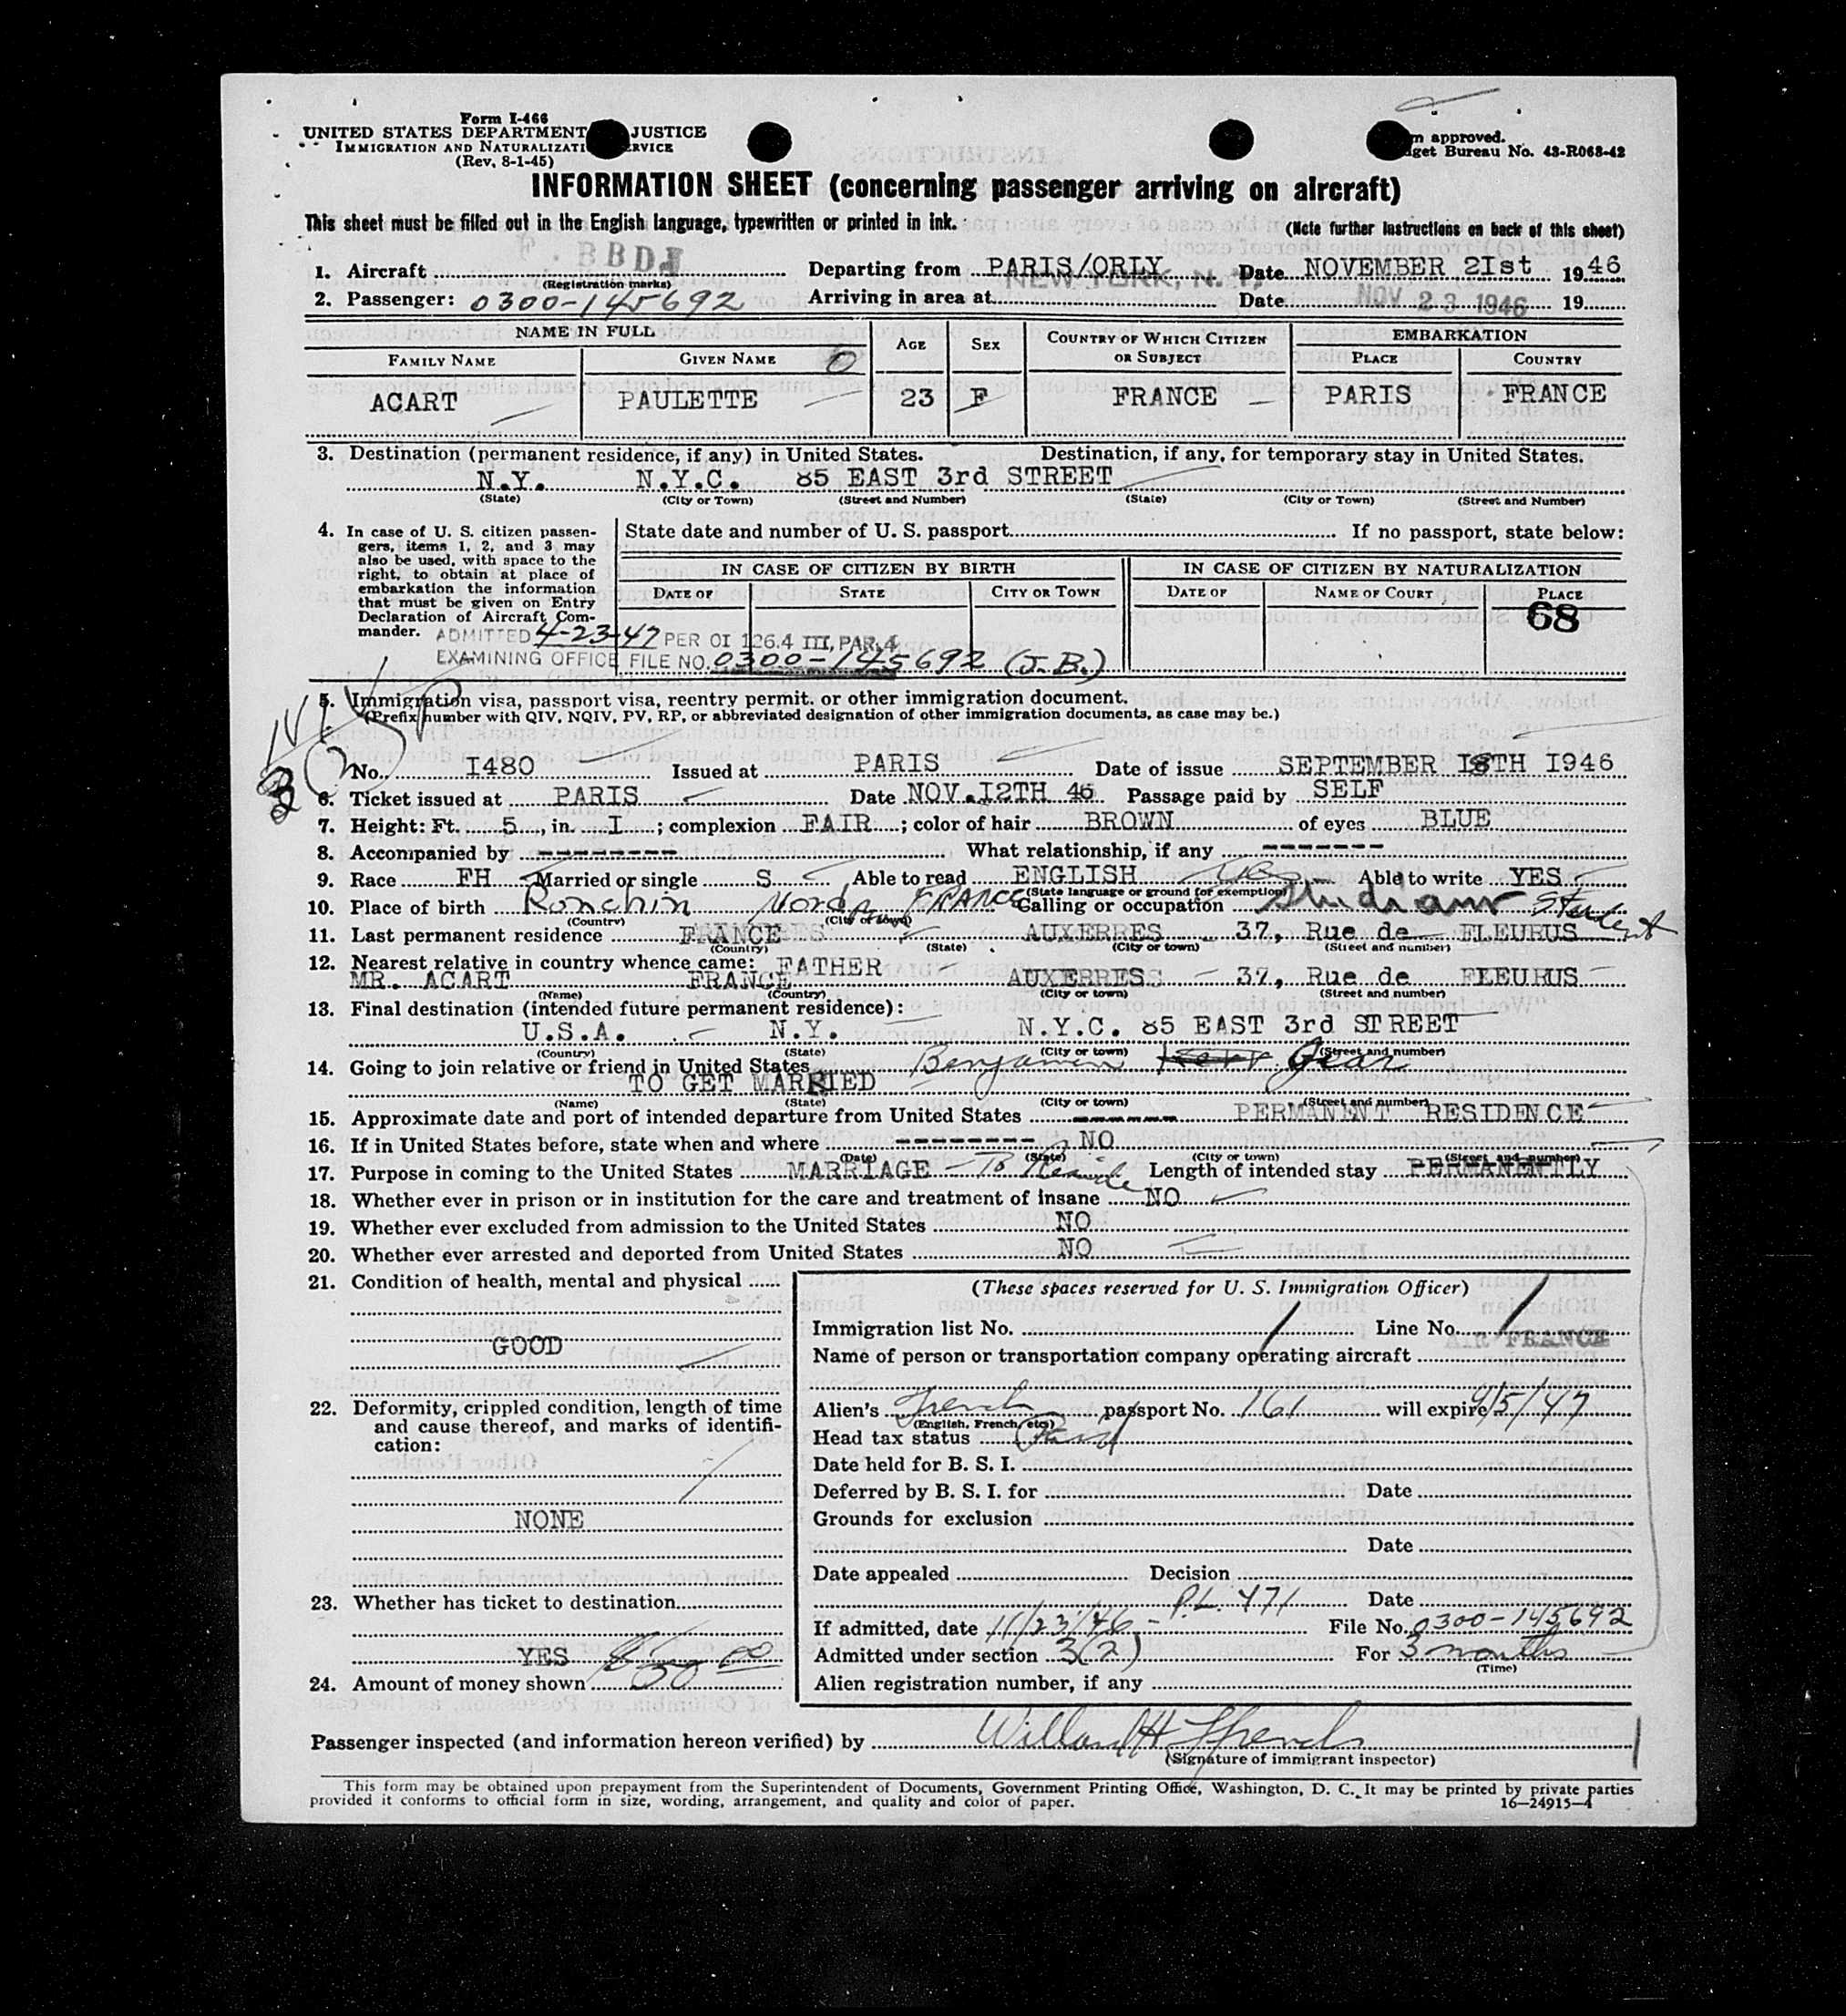 Form I-466
UNITED STATES DEPARTMENT JUSTICE
IMMIGRATION AND NATURALIZATI RVICE
(Rev. 8-1-45)
m approved.
get Bureau No. 43-R068-42
INFORMATION SHEET (concerning passenger arriving on aircraft)
This sheet must be filled out in the English language, typewritten or printed in ink.
(Note further instructions on back of this sheet)
1. Aircraft F. BBDJ Departing from PARIS/ORLY Date NOVEMBER 2Ist 1946
(Registration marks)
2. Passenger: 0300-145692 Arriving in area at NEW YORK, N. Y. Date NOV 23 1946 19
NAME IN FULL AGE SEX COUNTRY OF WHICH CITIZEN OR SUBJECT EMBARKATION
FAMILY NAME GIVEN NAME 0 PLACE COUNTRY
ACART PAULETTE 23 F FRANCE PARIS FRANCE
3. Destination (permanent residence, if any) in United States. Destination, if any, for temporary stay in United States.
N.Y. N.Y.C. 85 EAST 3rd STREET
(State) (City or Town) (Street and Number) (State) (City or Town) (Street and Number)
4. In case of U. S. citizen passen-
gers, items 1, 2, and 3 may
also be used, with space to the
right, to obtain at place of
embarkation the information
that must be given on Entry
Declaration of Aircraft Com-
mander.
State date and number of U. S. passport If no passport, state below:
IN CASE OF CITIZEN BY BIRTH IN CASE OF CITIZEN BY NATURALIZATION
DATE OF STATE CITY OR TOWN DATE OF NAME OF COURT PLACE
68
ADMITTED 4-23-47 PER OI 126.4 III, PAR.4
EXAMINING OFFICE FILE NO. 0300-145692 (J.B.)
5. Immigration visa, passport visa, reentry permit. or other immigration document.
(Prefix number with QIV, NQIV, PV, RP, or abbreviated designation of other immigration documents, as case may be.)
No. I480 Issued at PARIS Date of issue SEPTEMBER I8TH I946
6. Ticket issued at PARIS Date NOV.I2TH 46 Passage paid by SELF
7. Height: Ft. 5, in. I; complexion FAIR; color of hair BROWN of eyes BLUE
8. Accompanied by --------- What relationship, if any --------
9. Race FH Married or single S Able to read ENGLISH Able to write YES
(State language or ground for exemption)
10. Place of birth Ronchin Nord FRANCE Calling or occupation Student
(Country) (City or town)
11. Last permanent residence FRANCE AUXERRES 37, Rue de FLEURUS
(Country) (State) (City or town) (Street and number)
12. Nearest relative in country whence came: FATHER
MR. ACART FRANCE AUXERRES 37, Rue de FLEURUS
(Name) (Country) (City or town) (Street and number)
13. Final destination (intended future permanent residence):
U.S.A. N.Y. N.Y.C. 85 EAST 3rd STREET
(Country) (State) (City or town) (Street and number)
14. Going to join relative or friend in United States Benjamin
TO GET MARRIED
(Name) (State) (City or town) (Street and number)
15. Approximate date and port of intended departure from United States ------- PERMANENT RESIDENCE
16. If in United States before, state when and where --------- NO
(Date) (State) (City or town) (Street and number)
17. Purpose in coming to the United States MARRIAGE - To Reside Length of intended stay PERMANENTLY
18. Whether ever in prison or in institution for the care and treatment of insane NO
19. Whether ever excluded from admission to the United States NO
20. Whether ever arrested and deported from United States NO
21. Condition of health, mental and physical
GOOD
22. Deformity, crippled condition, length of time
and cause thereof, and marks of identifi-
cation:
NONE
23. Whether has ticket to destination
YES
24. Amount of money shown $50 00
(These spaces reserved for U. S. Immigration Officer)
Immigration list No. 1 Line No. 1
AIR FRANCE
Name of person or transportation company operating aircraft
Alien's French passport No. 161 will expire 9/5/47
(English, French, etc)
Head tax status Paid
Date held for B. S. I.
Deferred by B. S. I. for Date
Grounds for exclusion
Date
Date appealed Decision
P.L. 471 Date
If admitted, date 11/23/46 - File No. 0300-145692
Admitted under section 3(2) For 3 months
(Time)
Alien registration number, if any
Passenger inspected (and information hereon verified) by Willard H French
(Signature of immigrant inspector)
This form may be obtained upon prepayment from the Superintendent of Documents, Government Printing Office, Washington, D. C. It may be printed by private parties
provided it conforms to official form in size, wording, arrangement, and quality and color of paper. 16—24915-4